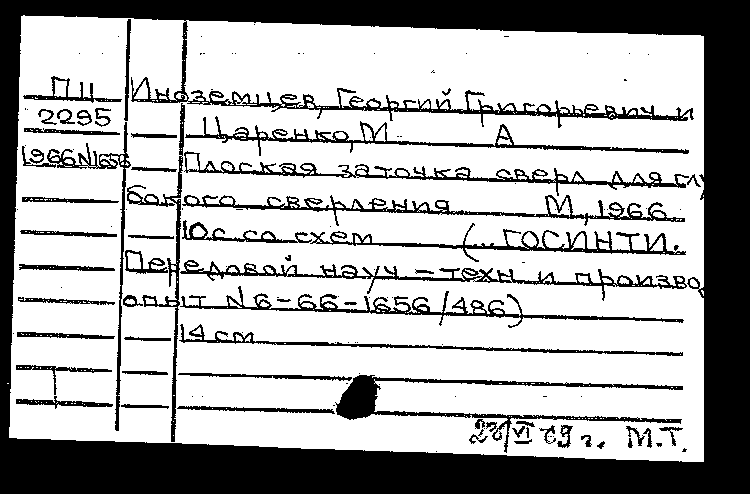 ПЦ Иноземцев, Георгий Григорьевич и
2295 Царенко, М А
1966N1656 Плоская заточка сверл для глу
бокого сверления М., 1966
10с со схем (...ГОСИНТИ.
Передовой науч-техн и произво
опыт N6-66-1656/486)
14 см
VI 69 г. М.Т.